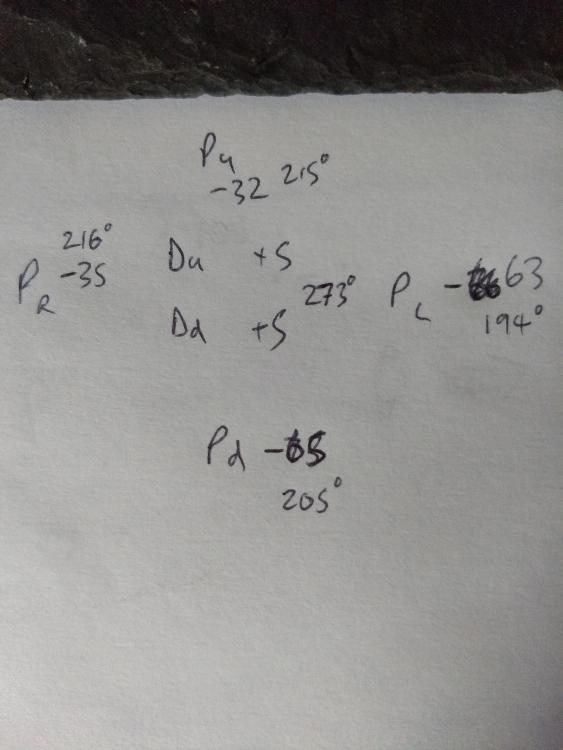 Pu
-32 215°
216°
PR -35
Du +5
273°
Dd +5
PL -63
194°
Pd -65
205°